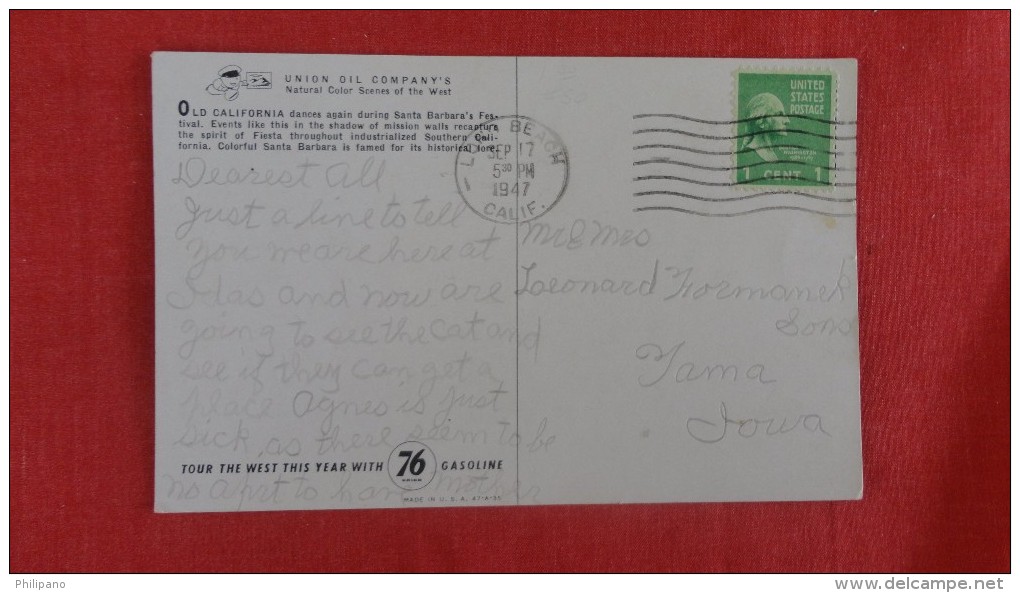 UNION OIL COMPANY'S
Natural Color Scenes of the West
OLD CALIFORNIA dances again during Santa Barbara's Fes-
tival. Events like this in the shadow of mission walls recapture
the spirit of Fiesta throughout industrialized Southern Cali-
fornia. Colorful Santa Barbara is famed for its historical lore.
Dearest All
Just a line to tell
you we are here at
Idas and now are
going to see the cat and
see if they can get a
place Agnes is just
sick, as there seem to be
no aprt to have mother
TOUR THE WEST THIS YEAR WITH 76 GASOLINE
UNION
MADE IN U. S. A. 47-A-35
LONG BEACH
SEP 17
5 30 PM
1947
CALIF.
UNITED
STATES
POSTAGE
WASHINGTON
1 CENT 1
Mr & Mrs
Leonard Formanek
Sons
Tama
Iowa
Philipano
www.delcampe.net